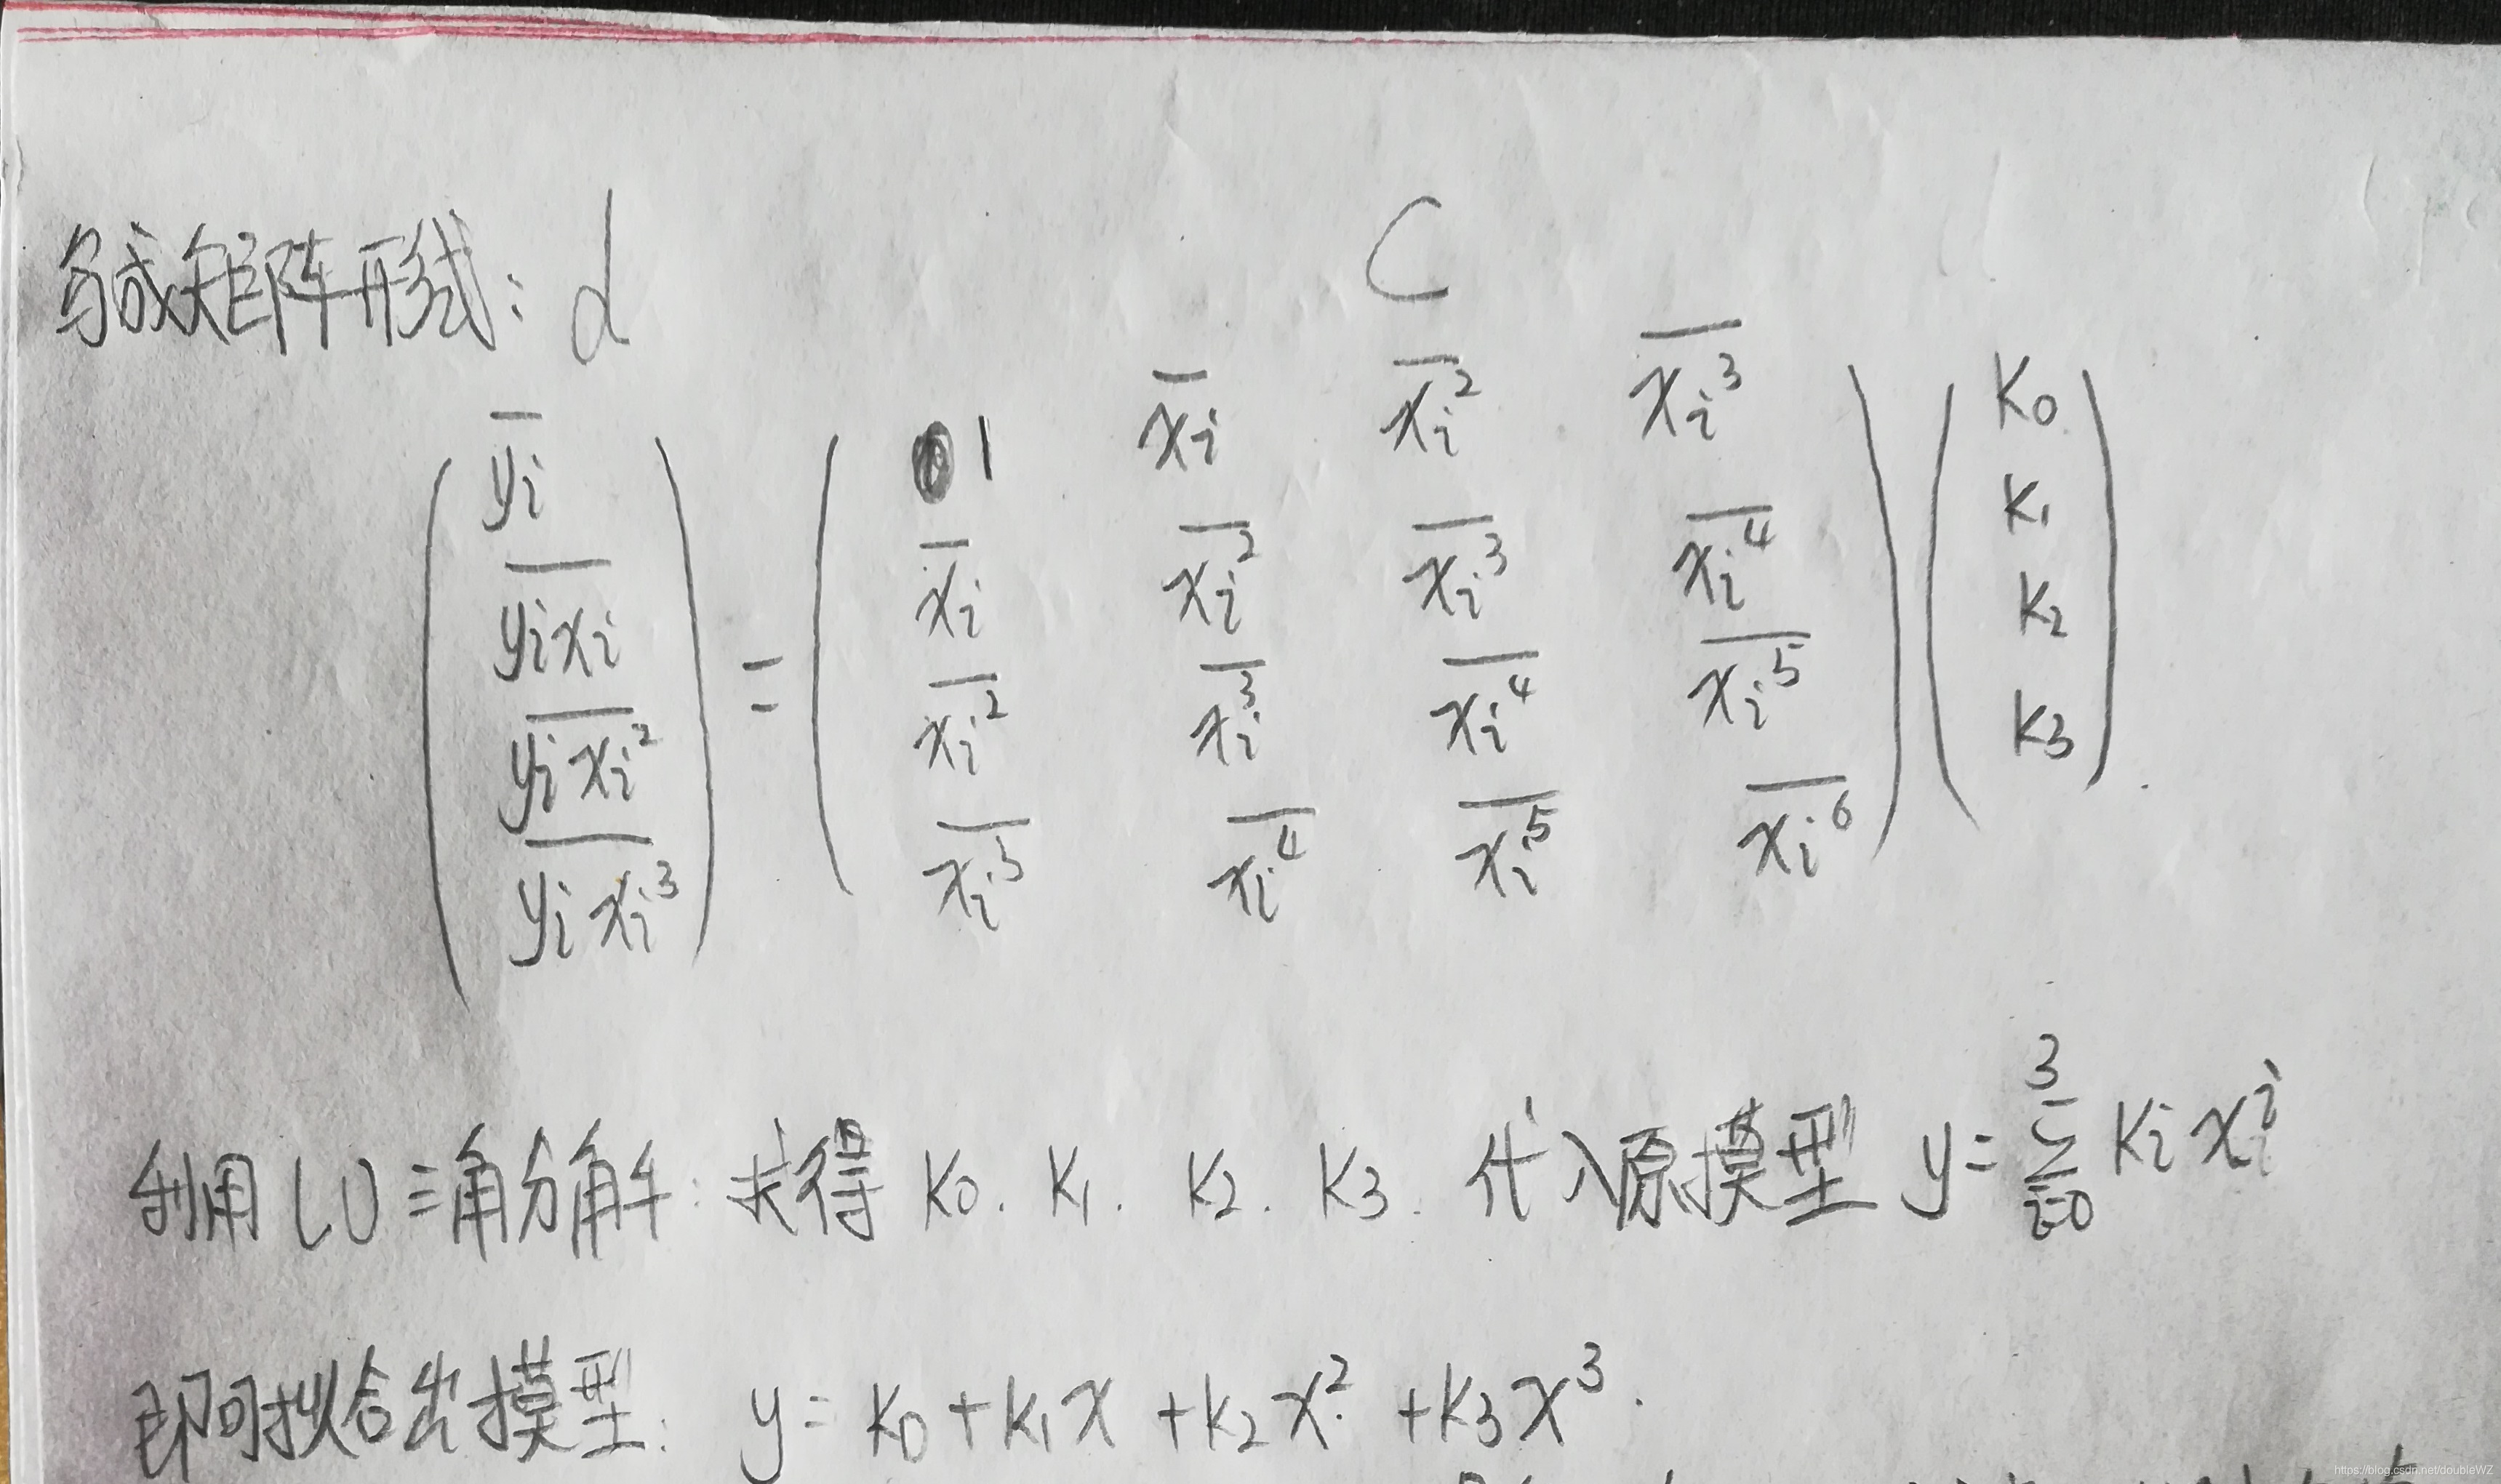 写成矩阵形式: d C
\begin{pmatrix} \overline{y_i} \\ \overline{y_i x_i} \\ \overline{y_i x_i^2} \\ \overline{y_i x_i^3} \end{pmatrix} = \begin{pmatrix} 1 & \overline{x_i} & \overline{x_i^2} & \overline{x_i^3} \\ \overline{x_i} & \overline{x_i^2} & \overline{x_i^3} & \overline{x_i^4} \\ \overline{x_i^2} & \overline{x_i^3} & \overline{x_i^4} & \overline{x_i^5} \\ \overline{x_i^3} & \overline{x_i^4} & \overline{x_i^5} & \overline{x_i^6} \end{pmatrix} \begin{pmatrix} k_0 \\ k_1 \\ k_2 \\ k_3 \end{pmatrix}.
利用LU三角分解: 求得 k_0. k_1. k_2. k_3. 代入原模型 y = \sum_{i=0}^{3} k_i x^i
即可拟合出模型: y = k_0 + k_1 x + k_2 x^2 + k_3 x^3.
https://blog.csdn.net/doubleWZ